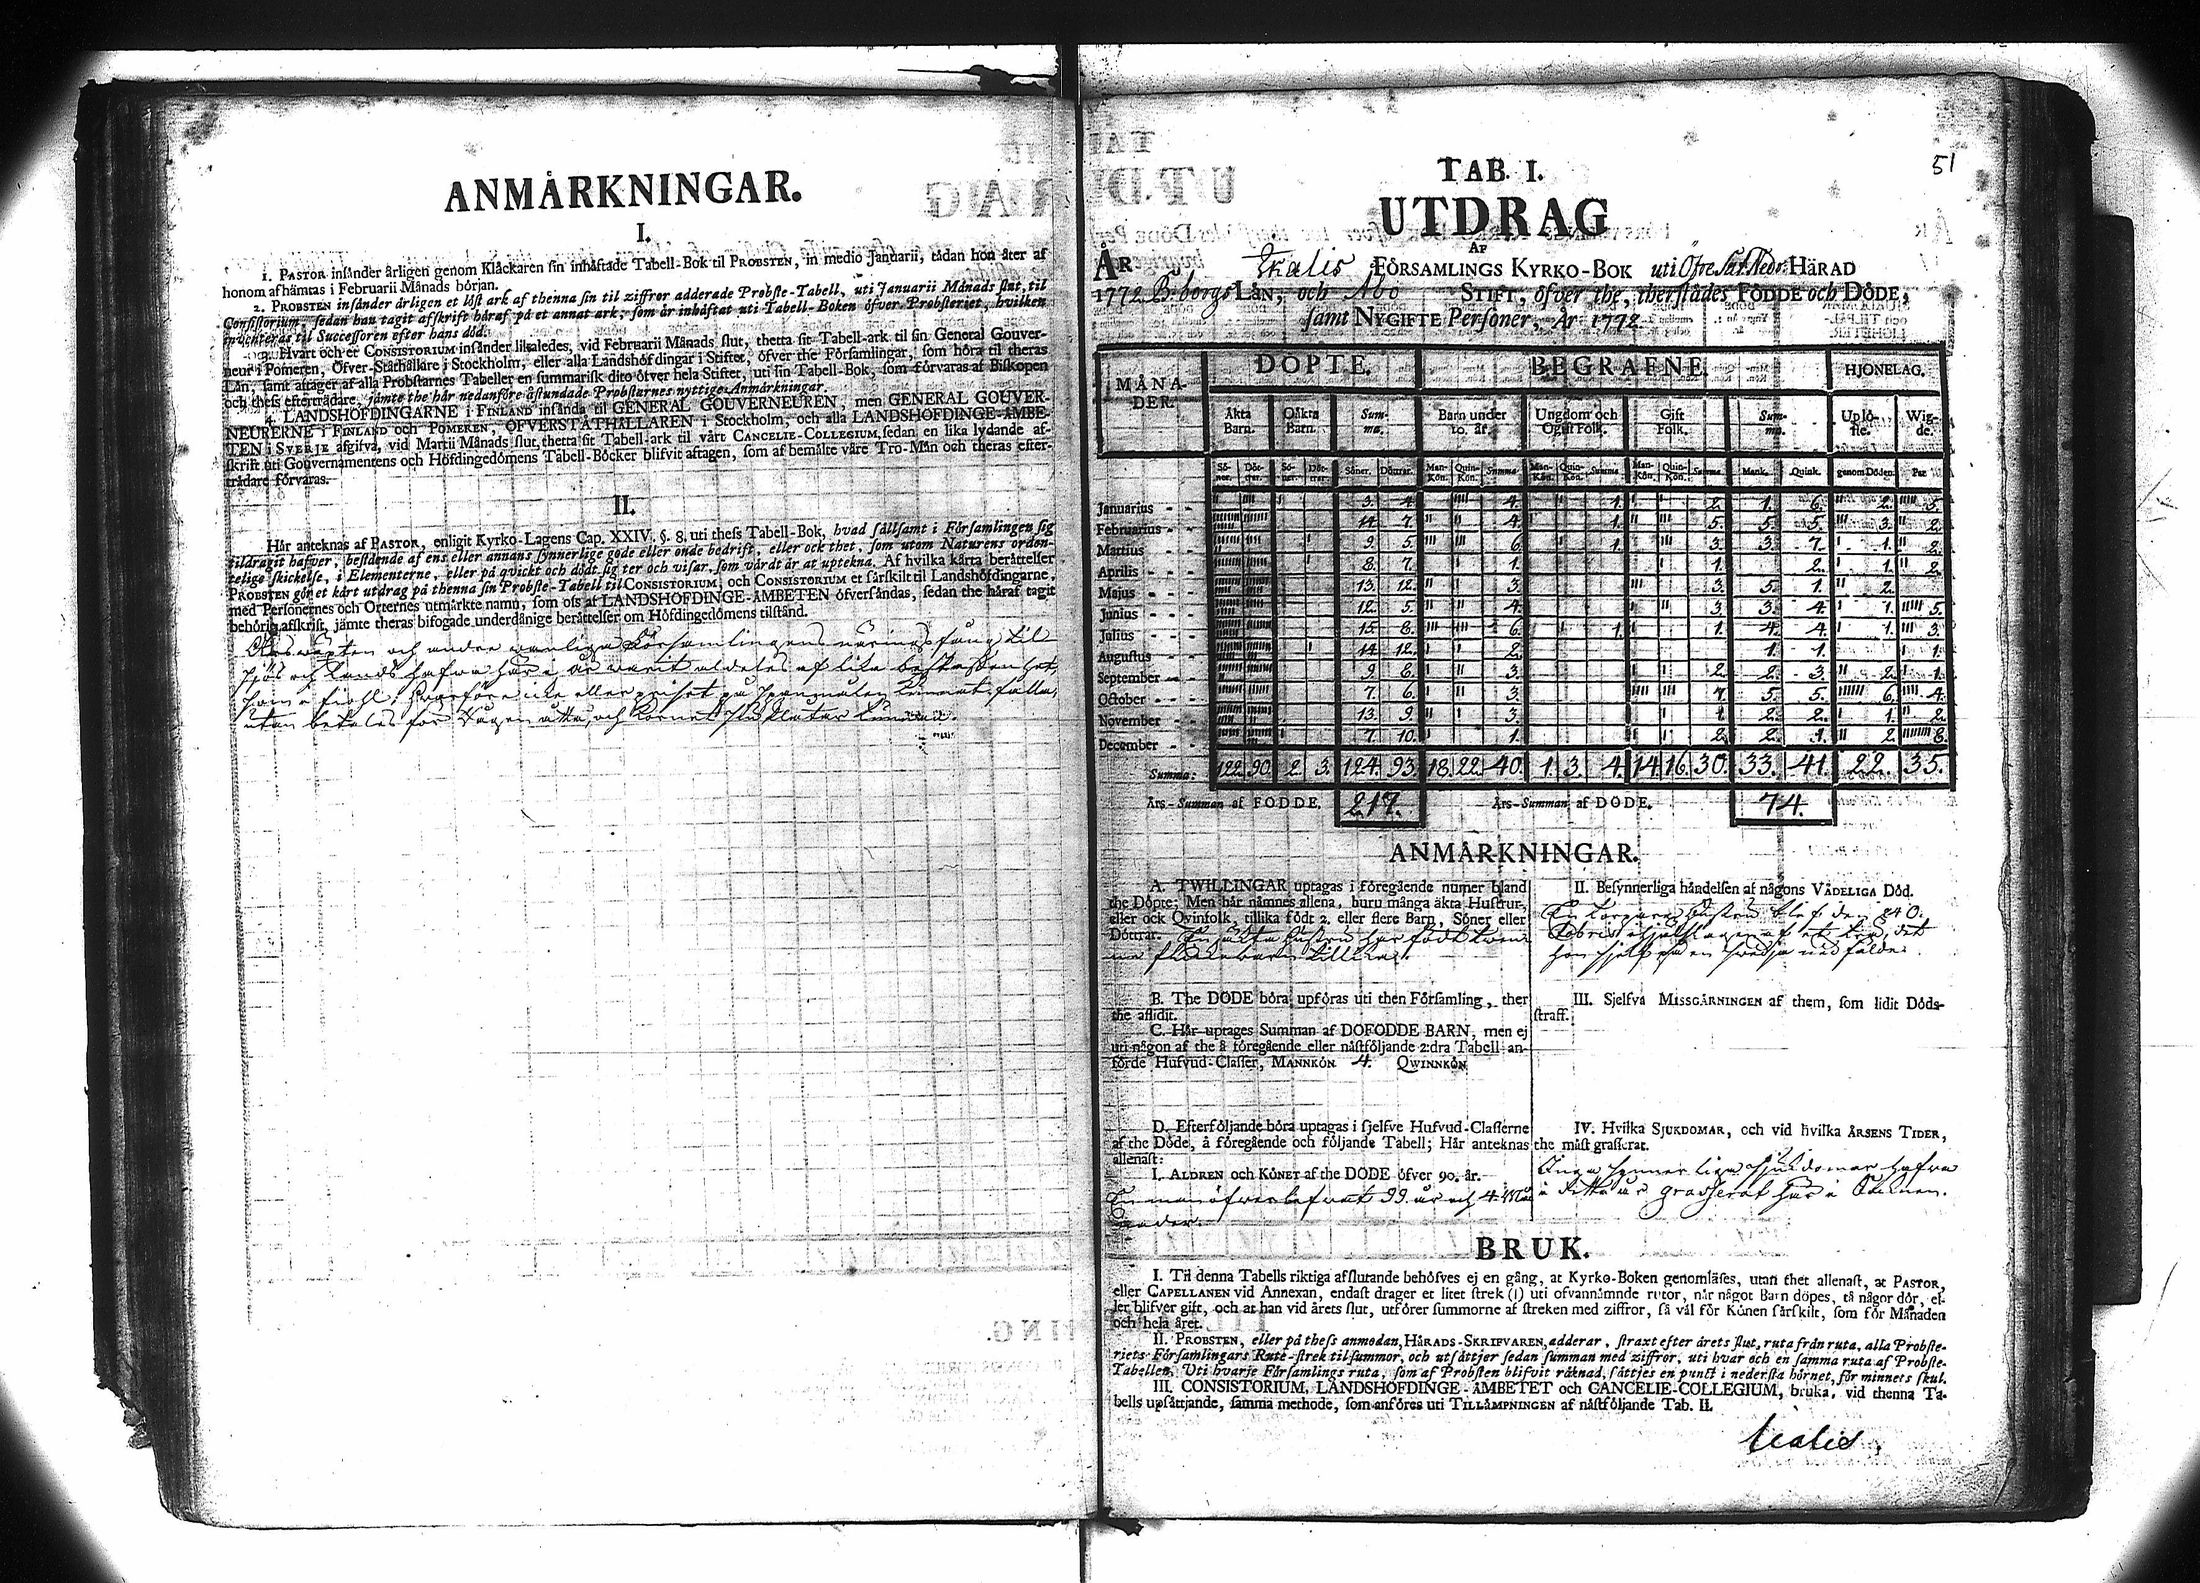 ANMÅRKNINGAR.
I.
1. PASTOR insånder årligen genom Klåckaren sin inhåftade Tabell-Bok til PROBSTEN, in medio Januarii, tådan hon åter af
honom afhåmtas i Februarii Månads bórjan.
2. PROBSTEN insånder årligen et lóst ark af thenna sin til ziffror adderade Probste-Tabell, uti Januarii Månads slut, til
Consistorium, sedan han tagit afskrift håraf på et annat ark, som år inhåftat uti Tabell-Boken ófver Probsteriet, hvilken
inventeras til Successoren efter hans dód.
3. Hvart och et CONSISTORIUM insånder likaledes, vid Februarii Månads slut, thetta sit Tabell-ark til sin General Gouver-
neur i Pomeren, Ófver-Ståthållare i Stockholm, eller alla Landshófdingar i Stiftet, ófver the Fórsamlingar, som hóra til theras
Lån, samt aftager af alla Probstarnes Tabeller en summarisk dito ófver hela Stiftet, uti sin Tabell-Bok, som fórvaras af Biskopen
och thess eftertrådare, jåmte the hår nedanfóre åstundade Probstarnes nyttiges Anmårkningar.
4. LANDSHÓFDINGARNE i FINLAND insånda til GENERAL GOUVERNEUREN, men GENERAL GOUVER-
NEURERNE i FINLAND och POMEREN, ÓFVERSTÅTHÅLLAREN i Stockholm, och alla LANDSHÓFDINGE-ÅMBE-
TEN i SVERJE afgifva, vid Martii Månads slut, thetta sit Tabell-ark til vårt CANCELIE-COLLEGIUM, sedan en lika lydande af-
skrift uti Gouvernamentens och Hófdingedómens Tabell-Bócker blifvit aftagen, som af bemålte våre Tro-Mån och theras efter-
trådare fórvaras.
II.
Hår anteknas af PASTOR, enligit Kyrko-Lagens Cap. XXIV. §. 8, uti thess Tabell-Bok, hvad sållsamt i Fórsamlingen sig
tildragit hafver, bestående af ens eller annans synnerlige gode eller onde bedrift, eller ock thet, som utom Naturens orden-
telige skickelse, i Elementerne, eller på qvickt och dódt sig ter och visar, som vårdt år at uptekna. Af hvilka kårta beråttelser
PROBSTEN gór et kårt utdrag på thenna sin Probste-Tabell til CONSISTORIUM, och CONSISTORIUM et sårskilt til Landshófdingarne,
med Personernes och Orternes utmårkte namn, som oss af LANDSHÓFDINGE-ÅMBETEN ófversåndas, sedan the håraf tagit
behórig afskrift, jåmte theras bifogade underdånige beråttelser om Hófdingedómens tilstånd.
Årswåxten och andre wanliga Församlingens näringsfång til
sjös och Lands hafwa här i år warit aldeles af lika beskaffenhet
som i fiohl,
utan
51
TAB. I.
UTDRAG
AF
ÅR Ikalis FÓRSAMLINGS KYRKO-BOK uti Öfre Sat. Nedr: HÄRAD
1772 B:borgs LÅN, och Åbo STIFT, ófver the, therstådes FÓDDE och DÓDE,
samt NYGIFTE Personer, År 1772.
MÅNA-
DER.
DÓPTE. BEGRAFNE. HJONELAG.
Åkta Barn. Oåkta Barn. Sum-ma. Barn under 10. år. Ungdom och Ogift Folk. Gift Folk. Sum-ma. Uplóste. Wigde.
Só-ner. Dót-trar. Só-ner. Dót-trar. Sóner. Dóttrar. Man-Kón. Quin-Kón. Summa Man-Kón. Quin-Kón. Summa Man-Kón. Quin-Kón. Summa Mank. Quink. genom Dóden. Par
Januarius - - 3. 4. 4. 1. 2. 1. 6. 2. 5.
Februarius - - 14. 7. 4. 1. 5. 5. 5. 3. 2.
Martius - - 9. 5. 6. 1. 3. 3. 7. 1. 2.
Aprilis - - 8. 7. 1. 1. 2. 1. 2.
Majus - - 13. 12. 3. 3. 5. 1. 2.
Junius - - 12. 5. 4. 3. 3. 4. 1. 5.
Julius - - 15. 8. 6. 1. 1. 4. 4. 1. 3.
Augustus - - 14. 12. 2. 1. 1. 1.
September - - 9. 8. 3. 2. 2. 3. 2. 1.
October - - 7. 6. 3. 7. 5. 5. 6. 4.
November - - 13. 9. 3. 1. 2. 2. 1. 2.
December - - 7. 10. 1. 2. 2. 1. 2. 8.
Summa: 122. 90. 2. 3. 124. 93. 18. 22. 40. 1. 3. 4. 14. 16. 30. 33. 41. 22. 35.
Års-Summan af FÓDDE. 217. Års-Summan af DÓDE. 74.
ANMÅRKNINGAR.
A. TWILLINGAR uptagas i fóregående numer bland
the Dópte; Men hår nåmnes allena, huru många åkta Hustrur,
eller ock Qvinfolk, tillika fódt 2. eller flere Barn, Sóner eller
Dóttrar. En äkta hustru har födt twen
ne flickebarn tillika.
B. The DÓDE bóra upfóras uti then Fórsamling, ther
the aflidit.
C. Hår uptages Summan af DÓFÓDDE BARN, men ej
uti någon af the å fóregående eller nåstfóljande 2:dra Tabell an-
fórde Hufvud-Classer, MANNKÓN 4. QWINNKÓN
D. Efterfóljande bóra uptagas i sjelfve Hufvud-Classerne
af the Dóde, å fóregående och fóljande Tabell; Hår anteknas
allenast:
I. ÅLDREN och KÓNET af the DÓDE ófver 90. år.
En man öfwerlefwat 99 år och 4 Må
nader.
II. Besynnerliga håndelsen af någons VÅDELIGA Dód.
En hustru blef den 24 O.
ctobris ihjälslagen af ett träd, det
hon sjelf på en swedja nedfälde.
III. Sjelfva MISSGÅRNINGEN af them, som lidit Dóds-
straff.
IV. Hvilka SJUKDOMAR, och vid hvilka ÅRSENS TIDER,
the måst grasserat.
Inga synnerliga sjukdomar hafwa
i detta år grasserat här i Socknen.
BRUK.
I. Til denna Tabells riktiga afslutande behófves ej en gång, at Kyrko-Boken genomlåses, utan thet allenast, at PASTOR,
eller CAPELLANEN vid Annexan, endast drager et litet strek (I) uti ofvannåmnde rutor, når något Barn dópes, tå någor dór, el-
ler blifver gift, och at han vid årets slut, utfórer summorne af streken med ziffror, så vål fór Kónen sårskilt, som fór Månaden
och hela året.
II. PROBSTEN, eller på thess anmodan, HÄRADS-SKRIFVAREN, adderar, straxt efter årets slut, ruta från ruta, alla Probste-
riets Fórsamlingars Rute-strek til summor, och utsåttjer sedan summan med ziffror, uti hvar och en samma ruta af Probste-
Tabellen. Uti hvarje Fórsamlings ruta, som af Probsten blifvit råknad, såttjes en punct i nedersta hórnet, fór minnets skul.
III. CONSISTORIUM, LANDSHÓFDINGE-ÅMBETET och CANCELIE-COLLEGIUM, bruka, vid thenna Ta-
bells upsåttjande, samma methode, som anfóres uti TILLÅMPNINGEN af nåstfóljande Tab. II.
Ikalis.